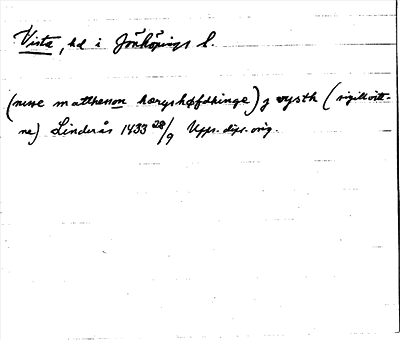 Vista, hd i Jönköpings l.
(nisse matthesson hærgshøfdhinge) j vysth (sigillvitt-
ne) Linderås 1433 28/9 Upps. dipl. orig.